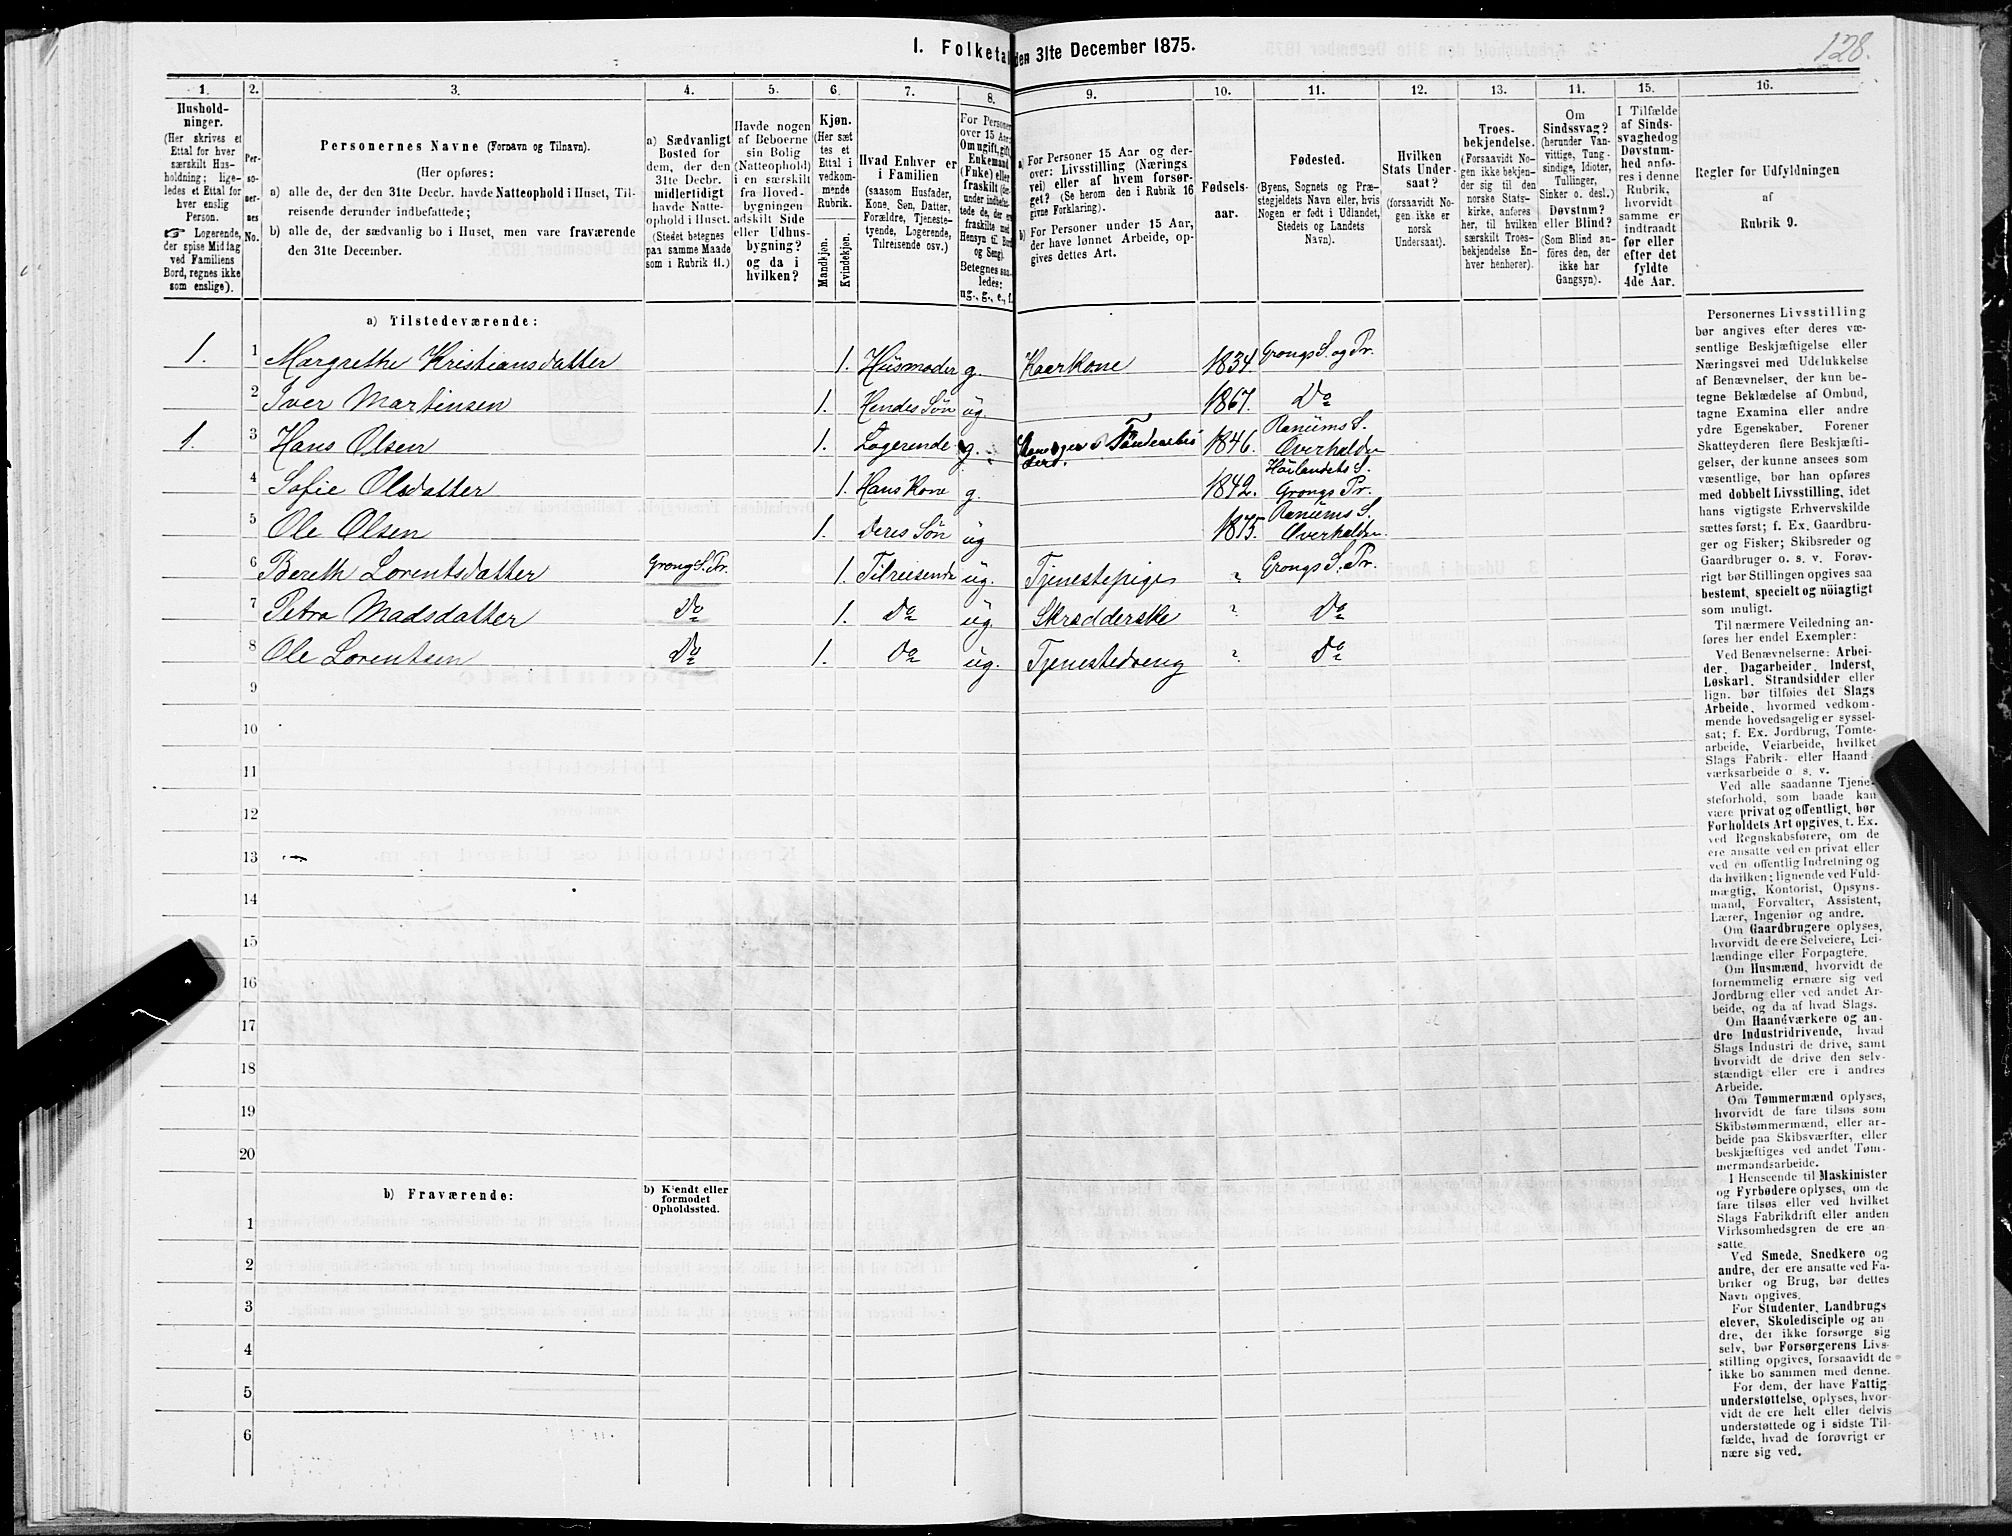 128.
I. Folketal den 31te December 1875.
1. 2. 3. 4. 5. 6. 7. 8. 9. 10. 11. 12. 13. 14. 15. 16.
Hushold-
ninger.
(Her skrives et
Ettal for hver
særskilt Hus-
holdning; lige-
ledes et Ettal for
hver enslig
Person.
☞ Logerende,
der spise Middag
ved Familiens
Bord, regnes ikke
som enslige).
Per-
so-
ner-
nes
No.
Personernes Navne (Fornavn og Tilnavn).
(Her opføres:
a) alle de, der den 31te Decbr. havde Natteophold i Huset, Til-
reisende derunder indbefattede;
b) alle de, der sædvanlig bo i Huset, men vare fraværende
den 31te December.
a) Sædvanligt
Bosted for
dem, der den
31te Decbr.
midlertidigt
havde Natte-
ophold i Huset.
(Stedet betegnes
paa samme Maade
som i Rubrik 11.)
Havde nogen
af Beboerne
sin Bolig
(Natteophold)
i en særskilt
fra Hoved-
bygningen
adskilt Side
eller Udhus-
bygning?
og da i
hvilken?
Kjøn.
(Her sæt
tes et
Ettal i
vedkom-
mende
Rubrik.
Mandkjøn.
Kvindekjøn.
Hvad Enhver er
i Familien
(saasom Husfader,
Kone, Søn, Datter,
Forældre, Tjeneste-
tyende, Logerende,
Tilreisende osv.)
For Personer
over 15 Aar:
Om ugift, gift,
Enkemand
(Enke) eller
fraskilt (der-
under indbefat-
tede de, der er
fraskilte med
Hensyn til Bord
og Seng).
Betegnes saa-
ledes:
ug., g., e., f.
a) For Personer 15 Aar og der-
over: Livsstilling (Nærings
vei) eller af hvem forsør-
get? (Se herom den i Rubrik 16
givne Forklaring).
b) For Personer under 15 Aar,
der have lønnet Arbeide, op-
gives dettes Art.
Fødsels-
aar.
Fødested.
(Byens, Sognets og Præ-
stegjeldets Navn eller, hvis
Nogen er født i Udlandet,
Stedets og Landets
Navn).
Hvilken
Stats Under-
saat?
(forsaavidt No-
gen ikke er
norsk
Undersaat).
Troes-
bekjendelse.
(Forsaavidt No-
gen ikke bekjen-
der sig til den
norske Stats-
kirke, anføres
her, til hvilken
særskilt Troes-
bekjendelse En-
hver henhører).
Om
Sindssvag?
(herunder Van-
vittige, Tung-
sindige, Idioter,
Tullinger,
Sinker o. desl.)
Døvstum?
eller Blind?
(Som Blind an-
føres den, der
ikke har
Gangsyn).
I Tilfælde
af Sinds-
svaghed og
Døvstum-
hed anfø-
res i denne
Rubrik,
hvorvidt
samme er
indtraadt
før eller
efter det
fyldte
4de Aar.
Regler før Udfyldningen
af
Rubrik 9.
a) Tilstedeværende:
1. 1 Margrethe Kristiansdatter 1. Husmoder g. Kaarkone 1834. Grongs S. og Pr.
2 Iver Martinsen 1. Hendes Søn ug. 1867. Do
1. 3 Hans Olsen 1. Logerende g. 1846. Ranums S. Overhalden
4 Sofie Olsdatter 1. Hans Kone g. 1842. Harlandets S. Grongs Pr.
5 Ole Olsen 1. Deres Søn ug 1875. Ranums S. Overhalden.
6 Bereth Lorentsdatter Grong S. Pr. 1. Tilreisende ug. Tjenestepige ? Grongs S. Pr.
7 Petra Madsdatter Do 1. Do ug. Skrædderske ? Do
8 Ole Lorentsen Do 1. Do ug. Tjenestedreng ? Do
9
10
11
12
13
14
15
16
17
18
19
20
b) Fraværende:
b) Kjendt eller
formodet
Opholdssted.
1
2
3
4
5
6
Personernes Livsstilling
bør angives efter deres væ-
sentlige Beskjæftigelse eller
Næringsvei med Udelukkelse
af Benævnelser, der kun be-
tegne Beklædelse af Ombud,
tagne Examina eller andre
ydre Egenskaber. Forener
Skatteyderen flere Beskjæfti-
gelser, der kunne ansees som
væsentlige, bør han opføres
med dobbelt Livsstilling, idet
hans vigtigste Erhvervskilde
sættes først; f. Ex. Gaardbru-
ger og Fisker; Skibsreder og
Gaardbruger o. s. v. Forøv-
rigt bør Stillingen opgives saa
bestemt, specielt og nöiagtigt
som muligt.
Til nærmere Veiledning an-
føres her endel Exempler:
Ved Benævnelserne: Arbei-
der, Dagarbeider, Inderst,
Løskarl, Strandsidder eller
lign. bør tilføies det Slags
Arbeide, hvormed vedkom-
mende hovedsagelig er syssel-
sat; f. Ex. Jordbrug, Tomte-
arbeide, Veiarbeide, hvilket
Slags Fabrik- eller Haand-
værksarbeide o. s. v.
Ved alle saadanne Tjene-
steforhold, som baade kan
være privat og offentligt, bør
Forholdets Art opgives, t. Ex.
ved Regnskabsførere, om de
ere ansatte ved en privat eller
ved en offentlig Indretning og
da hvilken; lignende ved Fuld-
mægtig, Kontorist, Opsyns-
mand, Forvalter, Assistent,
Lærer, Ingeniør og andre.
Om Gaardbrugere oplyses,
hvorvidt de ere Selveiere, Lei-
lændinge eller Forpagtere.
Om Husmænd, hvorvidt de
fornemmelig ernære sig ved
Jordbrug eller ved andet Ar-
beide, og da af hvad Slags.
Om Haandværkere og an-
dre Industridrivende, hvad
Slags Industri de drive, samt
hvorvidt de drive den selv-
stændigt eller ere i andres
Arbeide.
Om Tømmermænd oplyses,
hvorvidt de fare tilsøs som
Skibstømmermænd, eller ar-
beide paa Skibsværfter, eller
beskjæftiges ved andet Tøm-
mermandsarbeide.
I Henseende til Maskinister
og Fyrbødere oplyses, om de
fare tilsøs eller ved hvilket
Slags Fabrikdrift eller anden
Virksomhedsgren de ere an-
satte.
Ved Smede, Snedkere og
andre, der ere ansatte ved Fa-
briker og Brug, bør dettes
Navn opgives.
For Studenter, Landbrugs
elever, Skoledisciple og an-
dre, der ikke forsørge sig
selv, bør Forsørgerens Livs-
stilling opgives, forsaavidt de
ikke bo sammen med denne.
For dem, der have Fattig
understøttelse, oplyses, hvor-
vidt de ere helt eller delvis
understøttede og i sidste Til-
fælde, hvad de forøvrigt er
nære sig ved.